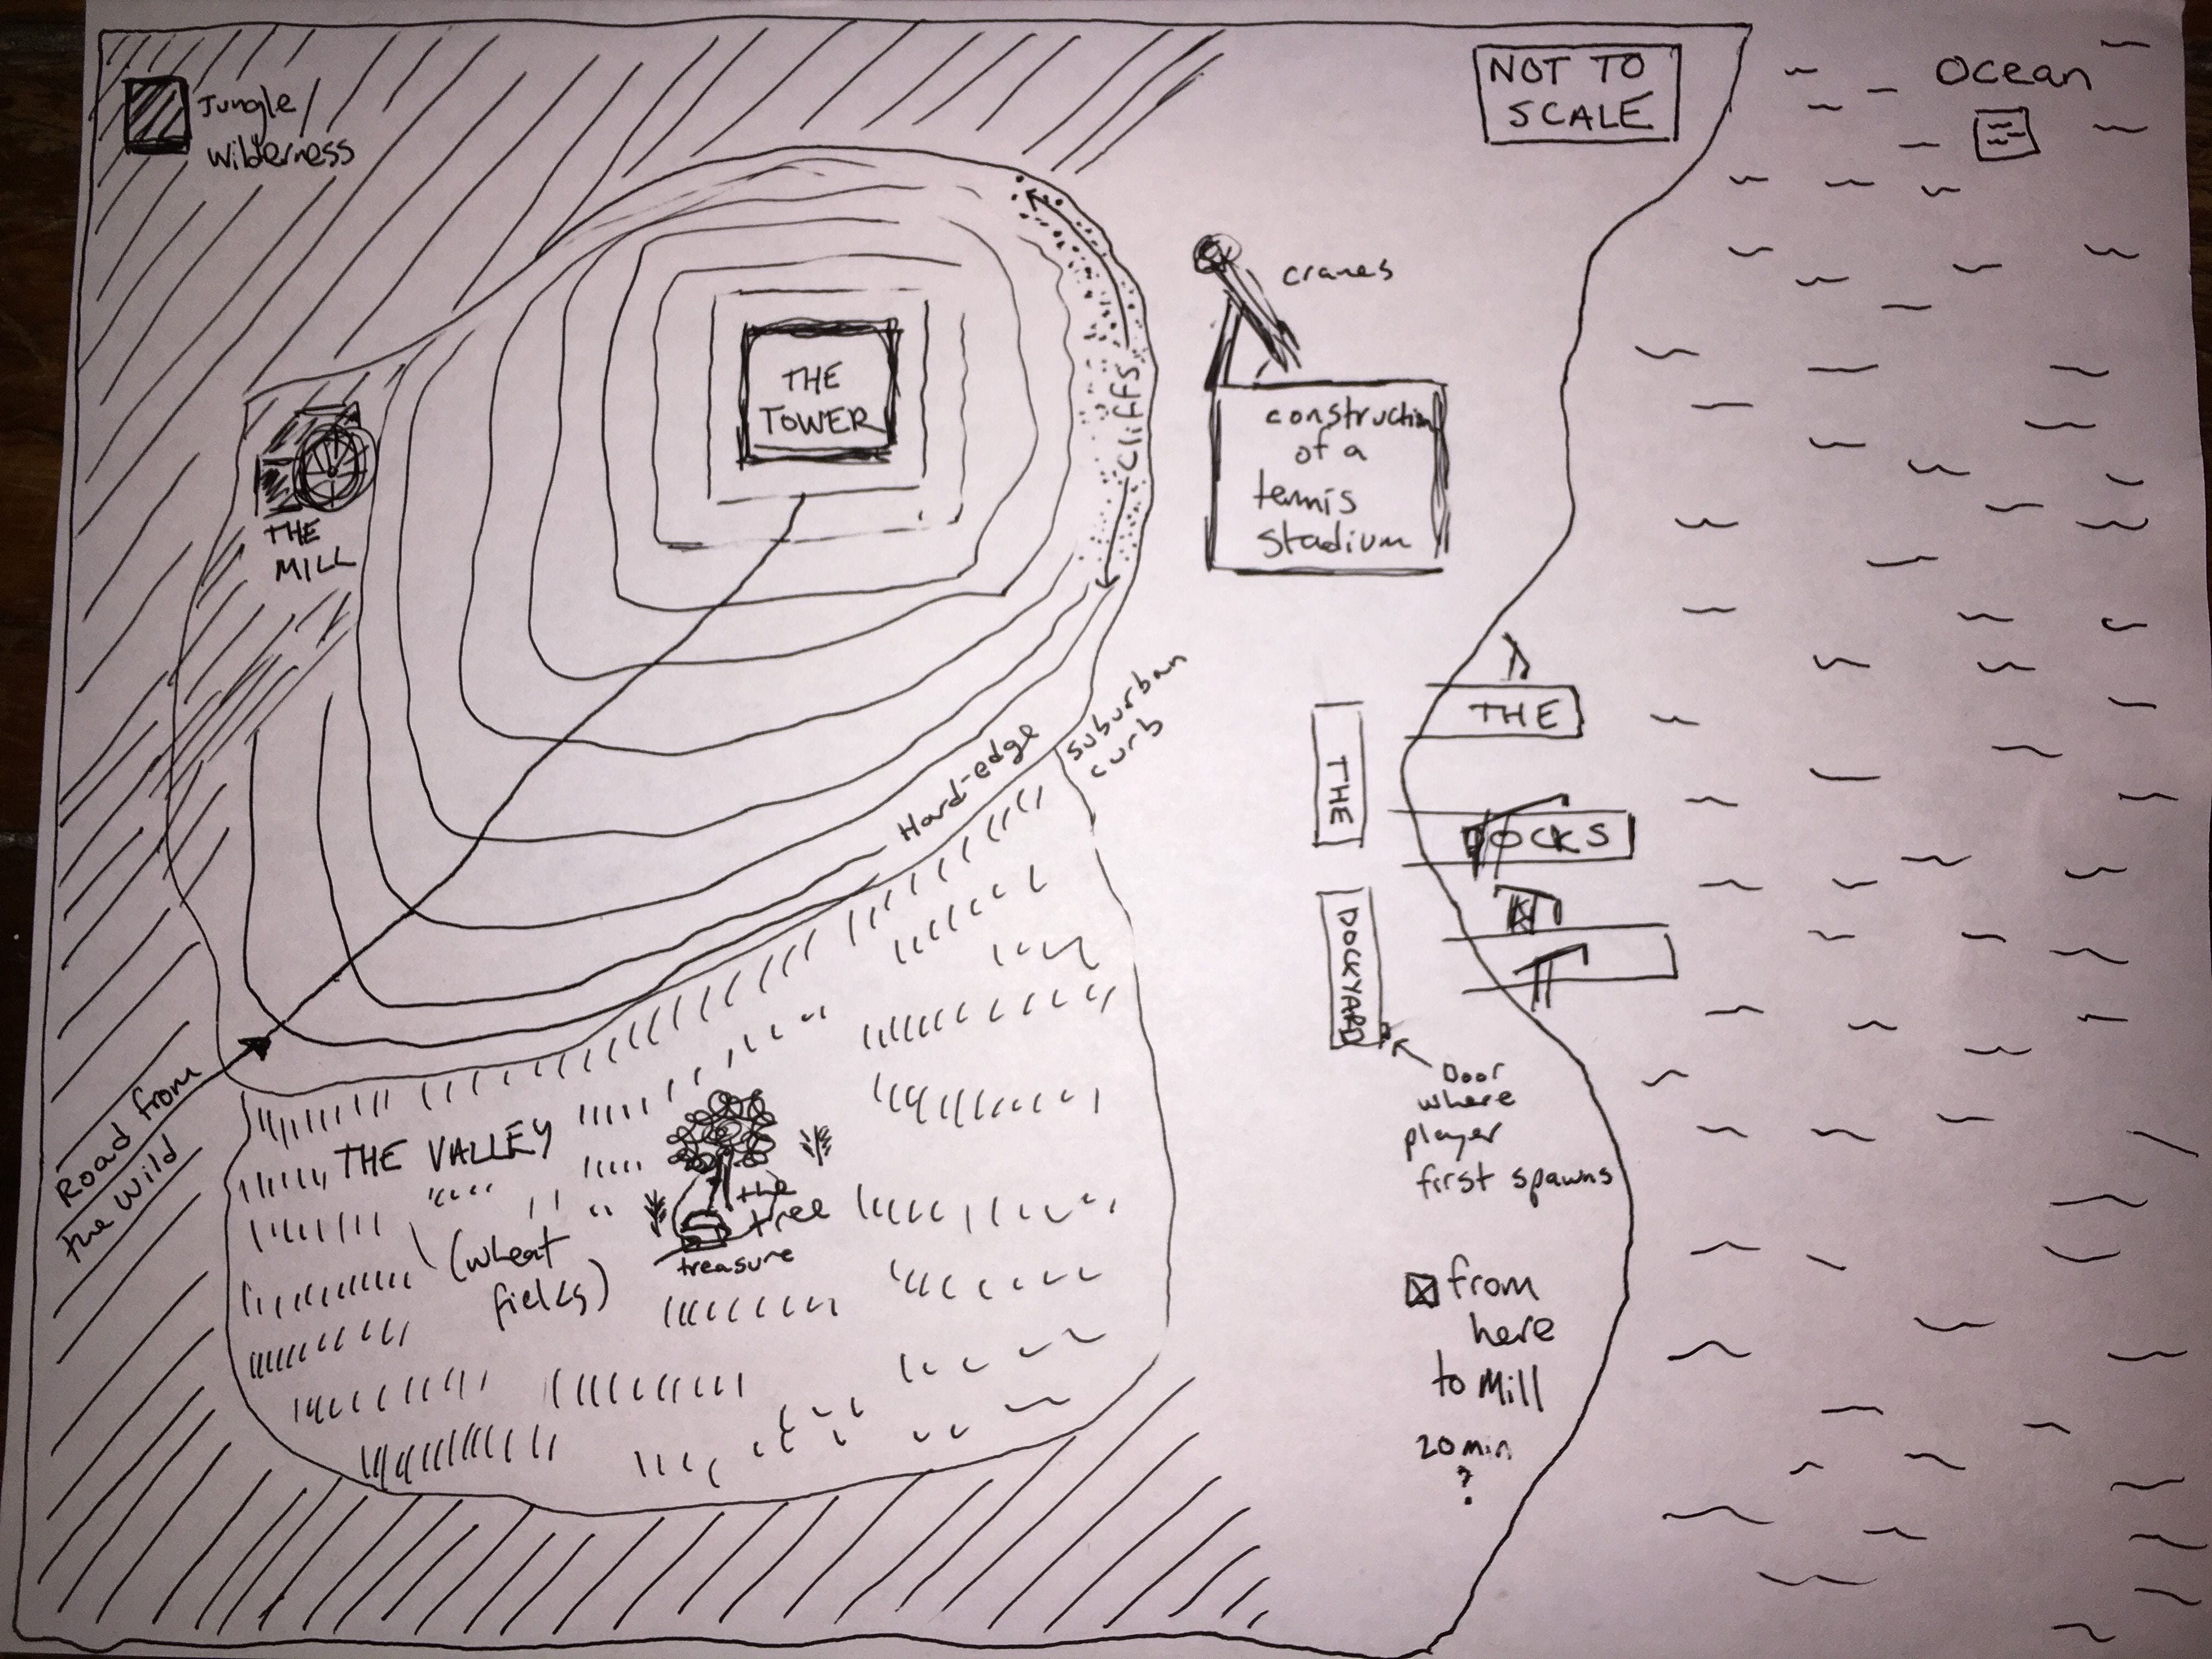 Jungle/
Wilderness
NOT TO
SCALE
Ocean
cranes
THE
TOWER
CLIFFS
construction
of a
tennis
stadium
THE
MILL
Hard-edge
suburban
curb
THE
DOCKS
THE
DOCKYARD
Door
where
player
first spawns
Road from
the wild
THE VALLEY
(wheat
fields)
the
tree
treasure
from
here
to Mill
20 min
?